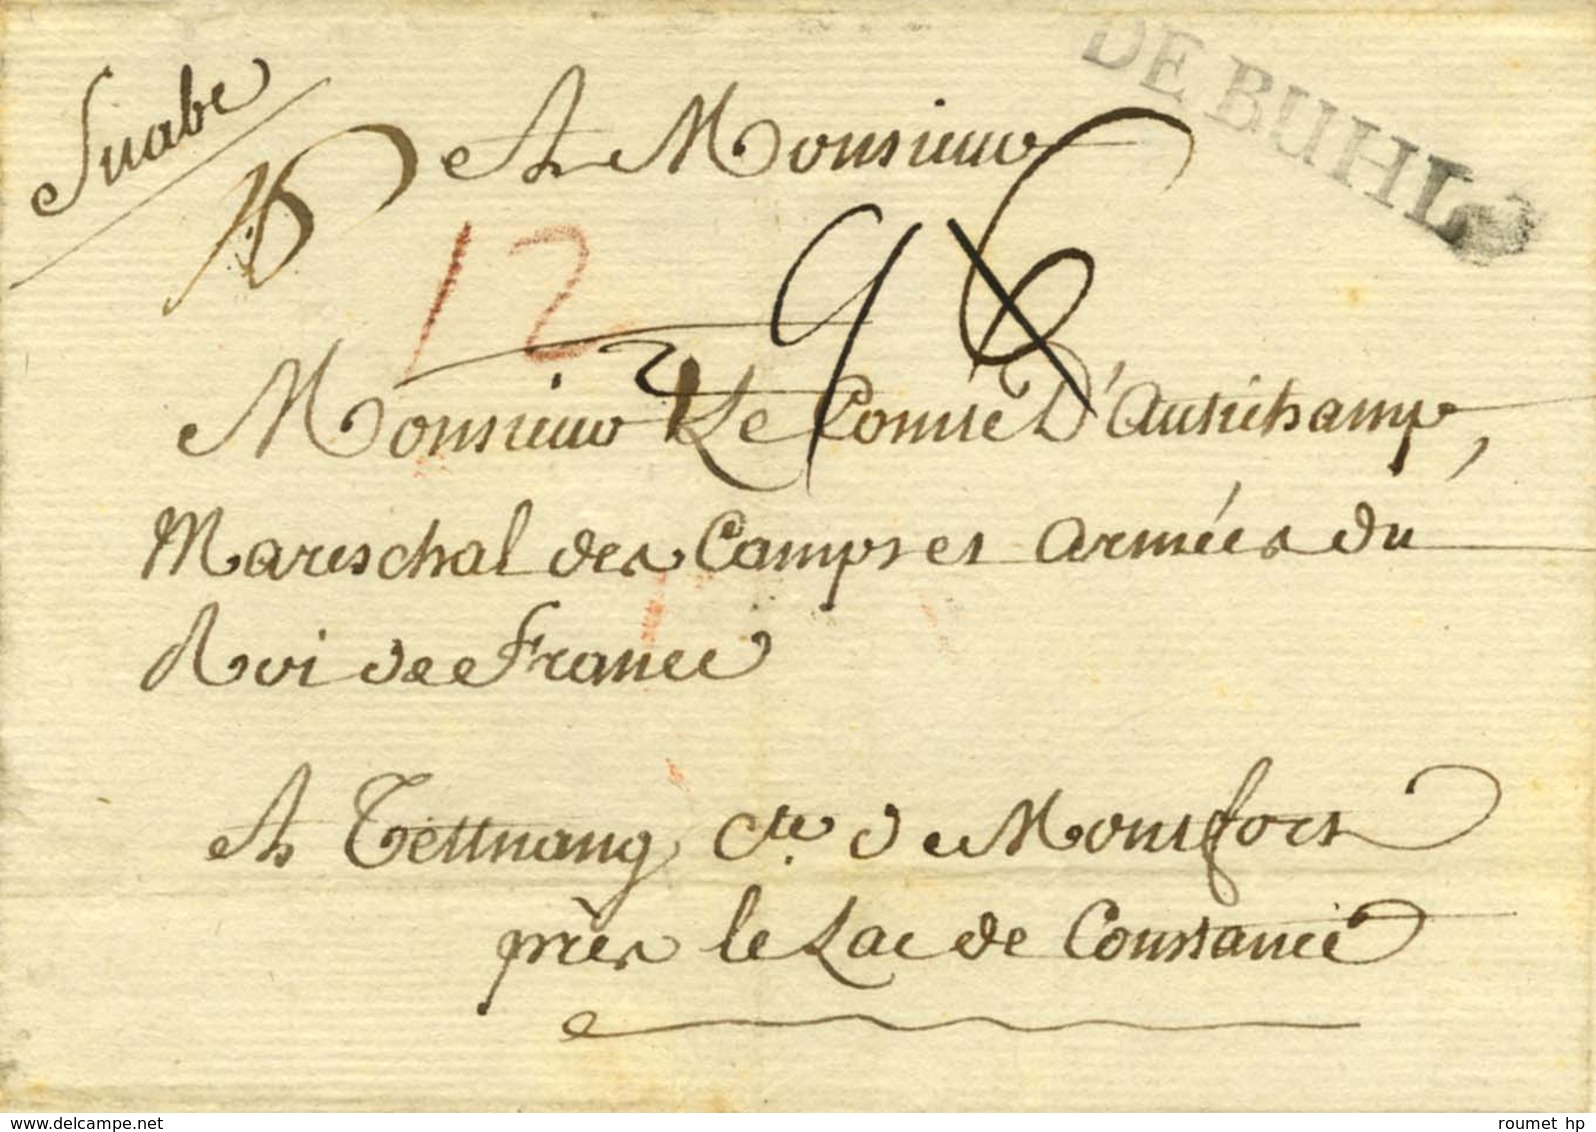 Suabe
DE BUHL
A Monsieur
12
9 6
Monsieur Le Comte D'Autichamp,
Mareschal des Camps et Armées du
Roi de France
A Tettnang Cté. de Montfort
près le Lac de Constance
www.delcampe.net
roumet hp